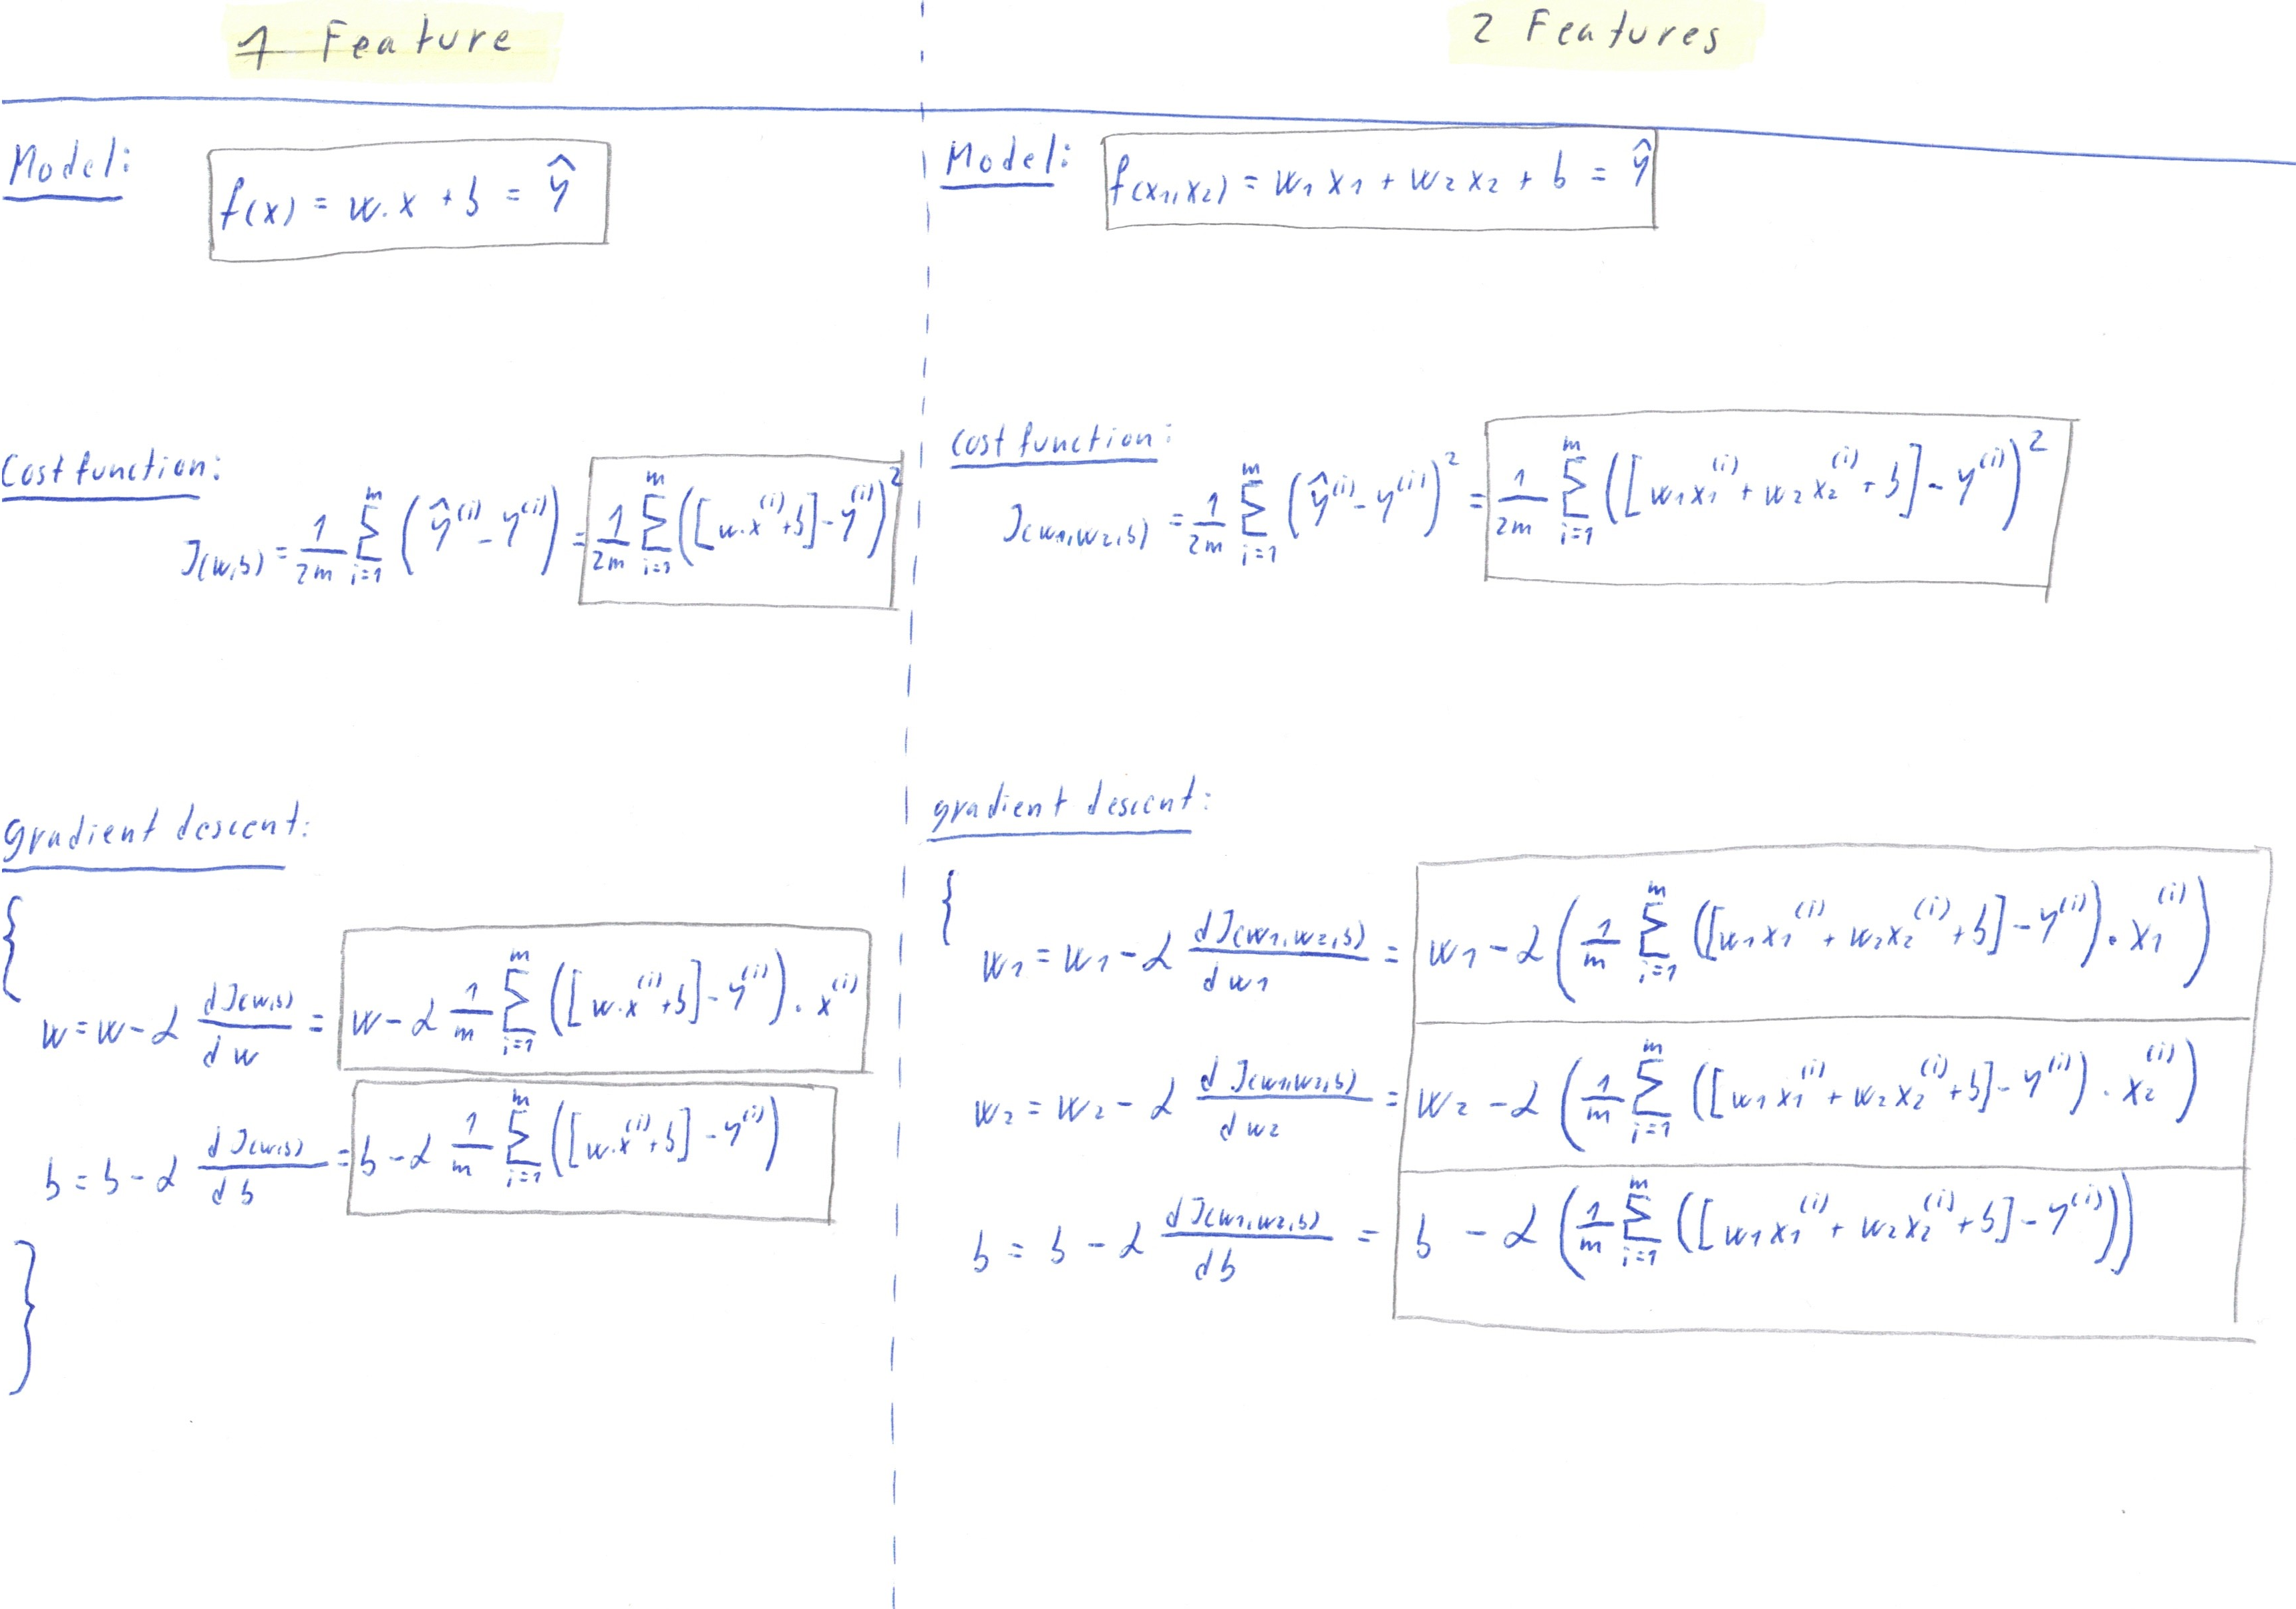 1 Feature
Model:
f(x) = w.x + b = ŷ
Cost function:
J(w,b) = 1/2m ∑_{i=1}^{m} (ŷ^(i) - y^(i)) = 1/2m ∑_{i=1}^{m} ([w.x^(i)+b] - y^(i))^2
gradient descent:
{
w = w - α dJ(w,b)/dw = w - α 1/m ∑_{i=1}^{m} ([w.x^(i)+b] - y^(i)) . x^(i)
b = b - α dJ(w,b)/db = b - α 1/m ∑_{i=1}^{m} ([w.x^(i)+b] - y^(i))
}
2 Features
Model:
f(x1,x2) = w1 x1 + w2 x2 + b = ŷ
Cost function:
J(w1,w2,b) = 1/2m ∑_{i=1}^{m} (ŷ^(i) - y^(i))^2 = 1/2m ∑_{i=1}^{m} ([w1x1^(i) + w2x2^(i) + b] - y^(i))^2
gradient descent:
{
w1 = w1 - α dJ(w1,w2,b)/dw1 = w1 - α (1/m ∑_{i=1}^{m} ([w1x1^(i) + w2x2^(i) + b] - y^(i)) . x1^(i))
w2 = w2 - α dJ(w1,w2,b)/dw2 = w2 - α (1/m ∑_{i=1}^{m} ([w1x1^(i) + w2x2^(i) + b] - y^(i)) . x2^(i))
b = b - α dJ(w1,w2,b)/db = b - α (1/m ∑_{i=1}^{m} ([w1x1^(i) + w2x2^(i) + b] - y^(i)))